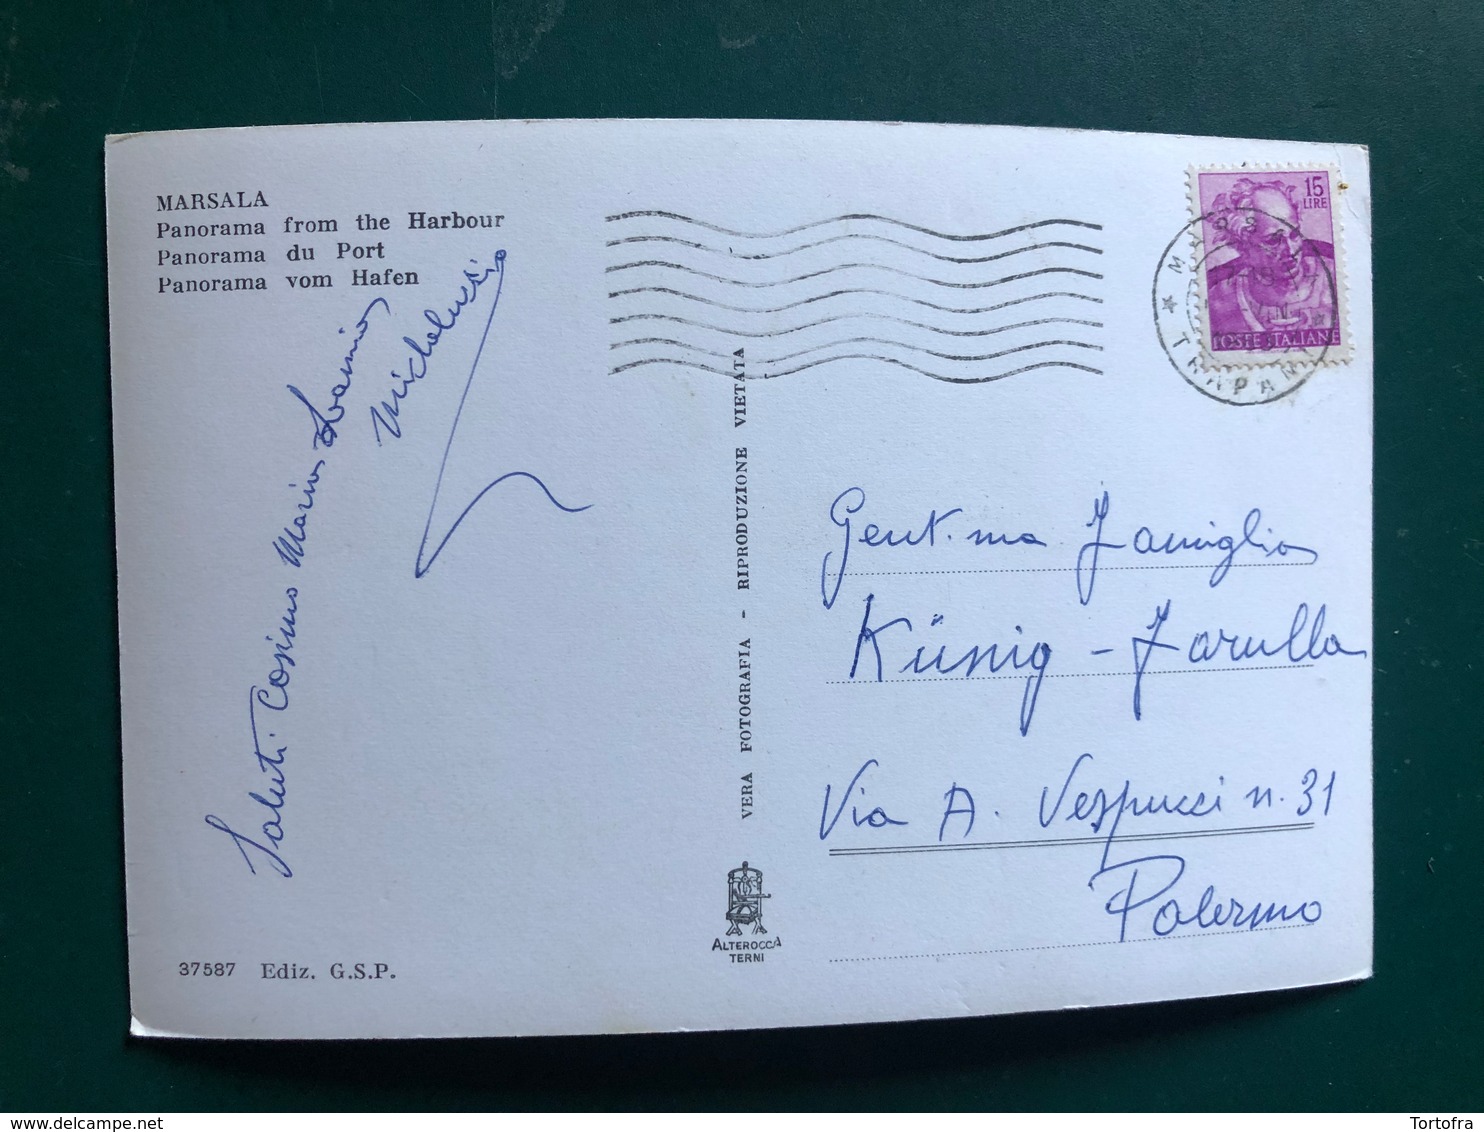 MARSALA
Panorama from the Harbour
Panorama du Port
Panorama vom Hafen
Saluti Cosimo Marino
37587 Ediz. G.S.P.
VERA FOTOGRAFIA - RIPRODUZIONE VIETATA
ALTEROCCA
TERNI
15
LIRE
POSTE ITALIANE
MARSALA
TRAPANI
Gent.ma Famiglia
Künig - Farulla
Via A. Vespucci n. 31
Palermo
delcampe.net
Tortofra